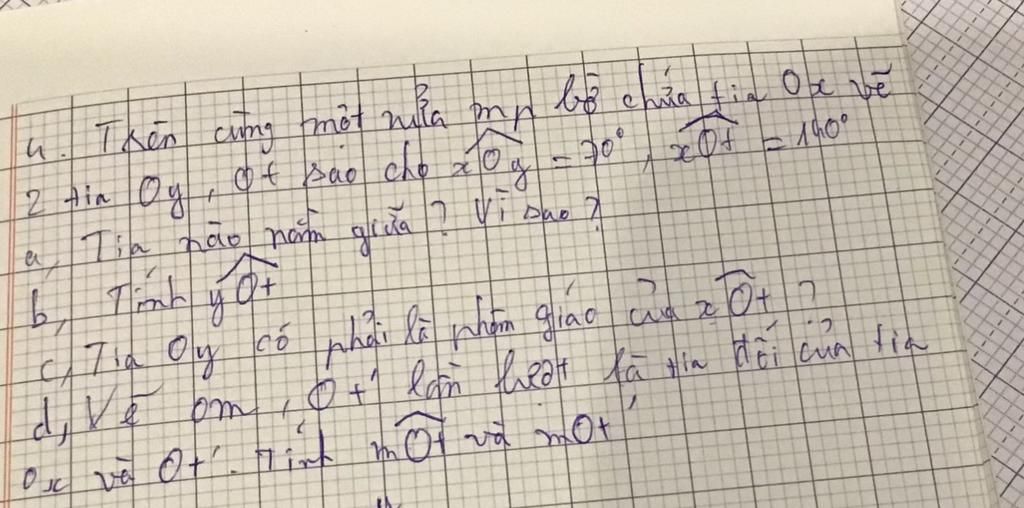 4. Trên cùng một nửa mp bờ chứa tia Ox vẽ
2 tia Oy, Ot sao cho xOy = 70°, xOt = 140°
a, Tia nào nằm giữa? Vì sao?
b, Tính yOt
c, Tia Oy có phải là phân giác của xOt?
d, Vẽ Om, Ot' lần lượt là tia đối của tia
Ox và Ot'. Tính mOt và mOt'